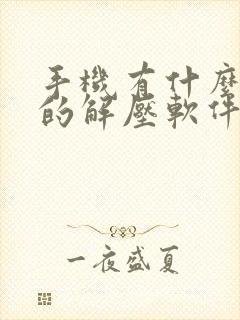 手機有什麼
的解壓軟件
一夜盛夏